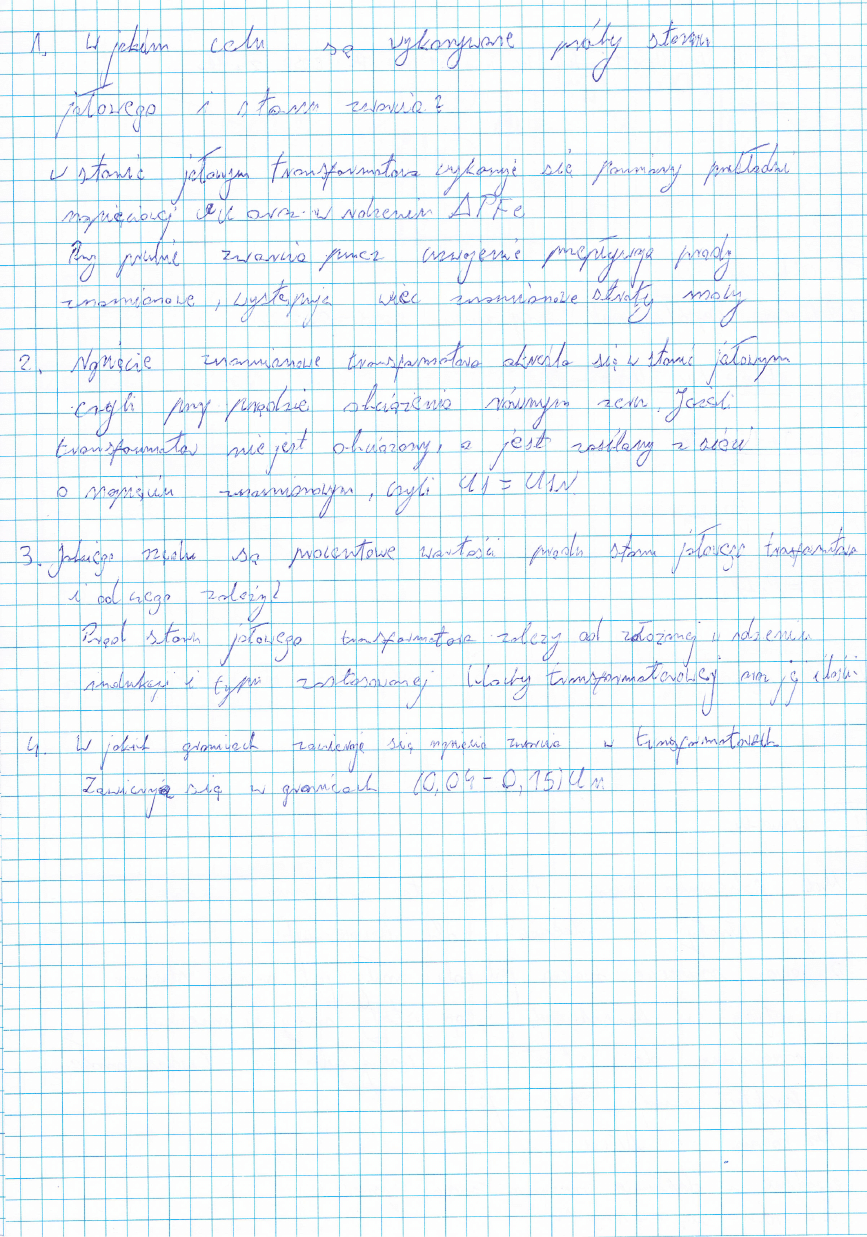 1. W jakim celu są wykonywane próby stanu
jałowego i stanu zwarcia?
w stanie jałowym transformatora wykonuje się pomiary przekładni
napięciowej oraz w rdzeniu ΔPFe
Przy próbie zwarcia przez uzwojenie przepływają prądy
znamionowe, występują więc znamionowe straty mocy
2. Napięcie znamionowe transformatora określa się w stanie jałowym
czyli przy prądzie obciążenia równym zeru. Jeżeli
transformator nie jest obciążony, a jest zasilany z sieci
o napięciu znamionowym, czyli U1 = U1N
3. Jakiego rzędu są procentowe wartości prądu stanu jałowego transformatora
i od czego zależy?
Prąd stanu jałowego transformatora zależy od założonej w rdzeniu
indukcji i typu zastosowanej blachy transformatorowej oraz jej ilości
4. W jakich granicach zawierają się napięcia zwarcia w transformatorach
Zawierają się w granicach (0,04 - 0,15) Un